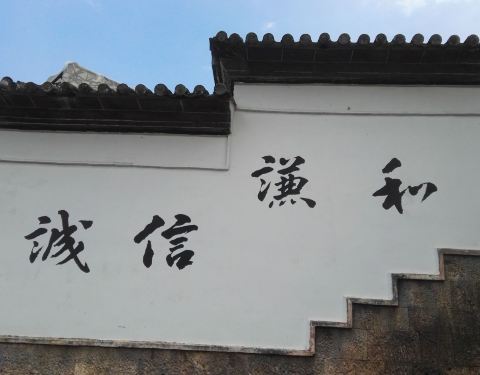 誠信
謙和